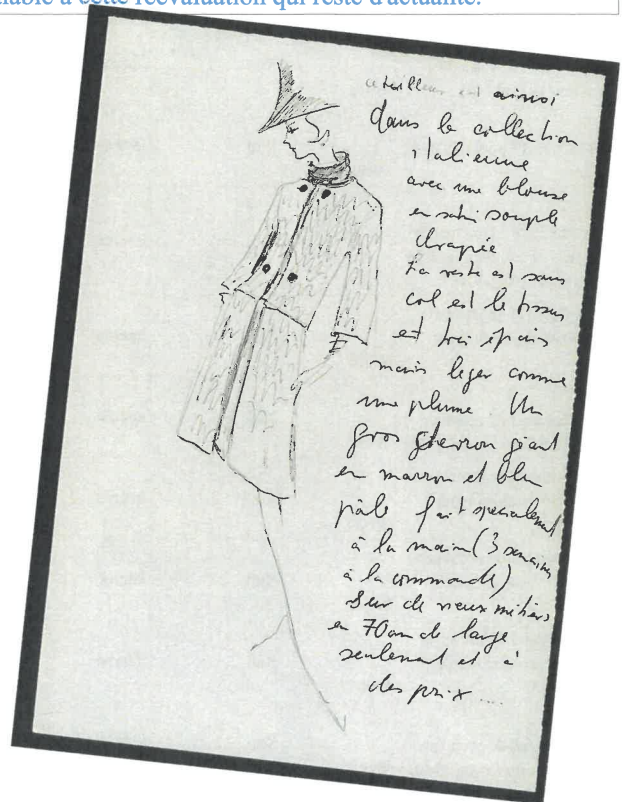 à cette réévaluation qui reste d'actualité.
ce tailleur est ainsi
dans la collection
italienne
avec une blouse
en satin souple
drapée
La veste est sans
col est le tissus
est très épais
mais leger comme
une plume. Un
gros chevron géant
en marron et bleu
pâle fait specialement
à la main (3 semaines
à la commande)
Sur de vieux métiers
en 70cm de large
seulement et à
des prix ....